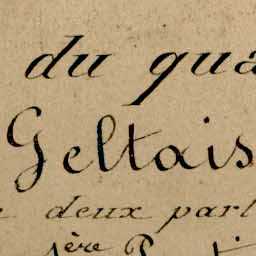 du qua
Geltais
deux part
1ère Parti